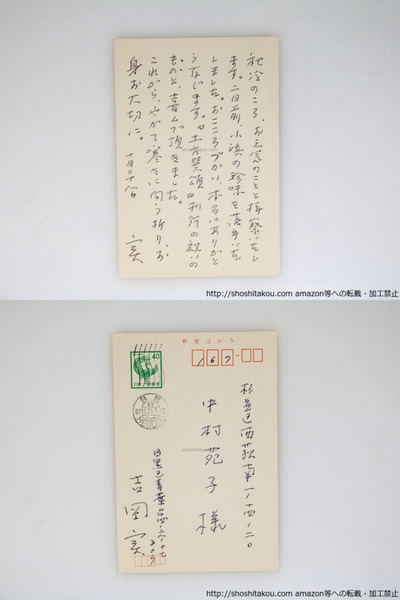 秋冷のころ、お元気のことと拝察いたし
ます。二日前、小浜の珍味を落手いた
しました。おこころづかい、本当にありがと
うございます。『土方巽頌』刊行の祝いの
ものと、喜んで頂きました。
これから、やがて寒さに向う折り、お
身お大切に。
十月二十八日
実
http://shoshitakou.com amazon等への転載・加工禁止
郵便はがき
40
167
杉並区西荻南一ノ一四ノ二〇
中村苑子様
目黒区青葉台四ノ
吉岡実
http://shoshitakou.com amazon等への転載・加工禁止